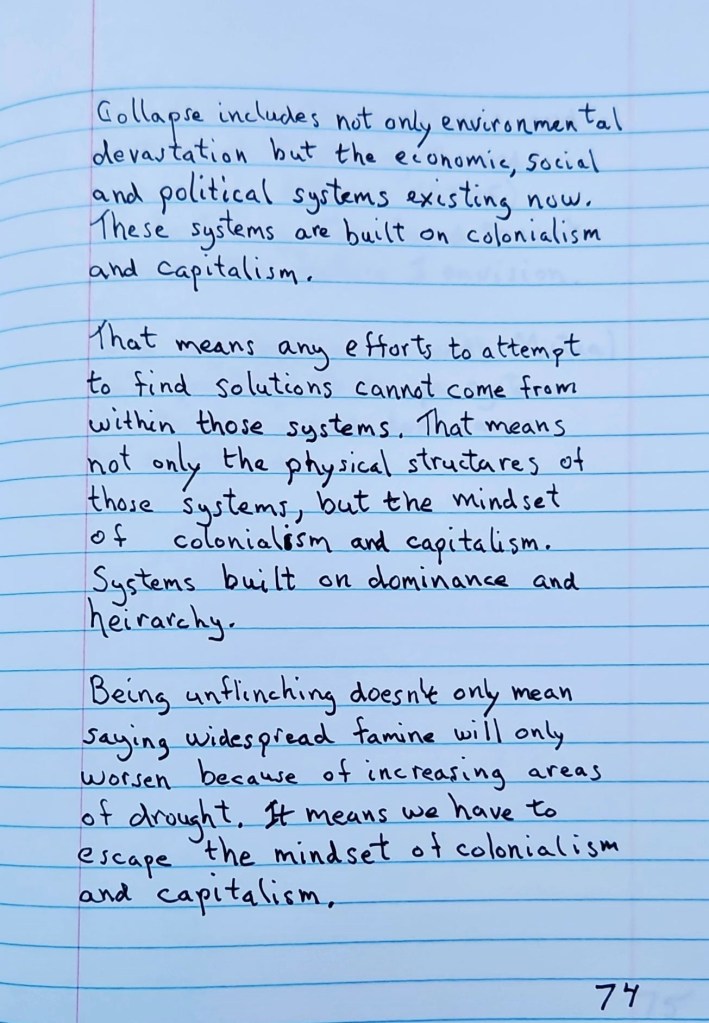 Collapse includes not only environmental
devastation but the economic, social
and political systems existing now.
These systems are built on colonialism
and capitalism.
That means any efforts to attempt
to find solutions cannot come from
within those systems. That means
not only the physical structures of
those systems, but the mindset
of colonialism and capitalism.
Systems built on dominance and
heirarchy.
Being unflinching doesn't only mean
saying widespread famine will only
worsen because of increasing areas
of drought. It means we have to
escape the mindset of colonialism
and capitalism.
74